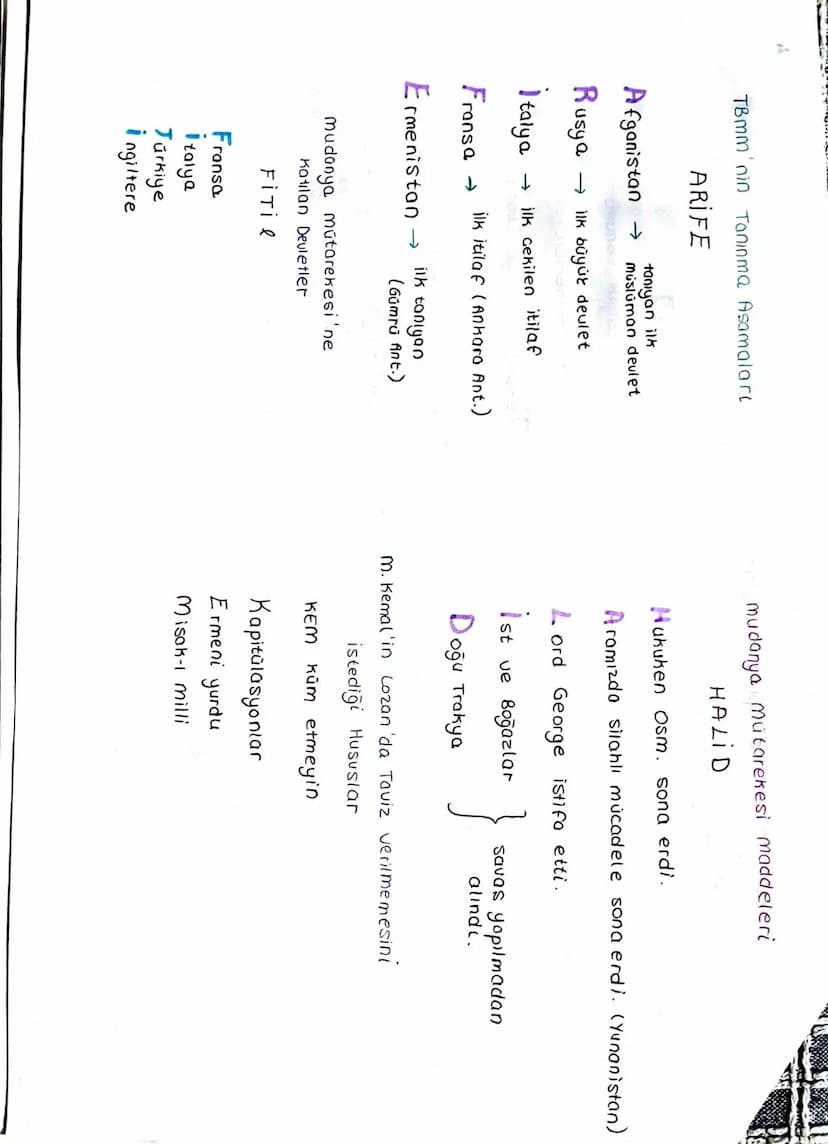 TBmm'nin Tanınma Aşamaları
ARİFE
Afganistan → tanıyan ilk
müslüman devlet
Rusya → ilk büyük devlet
İtalya → ilk çekilen itilaf
Fransa → ilk itilaf (Ankara Ant.)
Ermenistan → ilk tanıyan
(Gümrü Ant.)
mudanya mütarekesi'ne
Katılan Devletler
FİTİL
Fransa
İtalya
Türkiye
İngiltere
mudanya mütarekesi maddeleri
HALİD
Hukuken Osm. sona erdi.
Aramızda silahlı mücadele sona erdi. (Yunanistan)
Lord George istifa etti.
İst ve Boğazlar
Doğu Trakya
} savaş yapılmadan
alındı.
m. Kemal'in Lozan'da Taviz verilmemesini
istediği Hususlar
KEM KÜM etmeyin
Kapitülasyonlar
Ermeni yurdu
Misak-ı milli